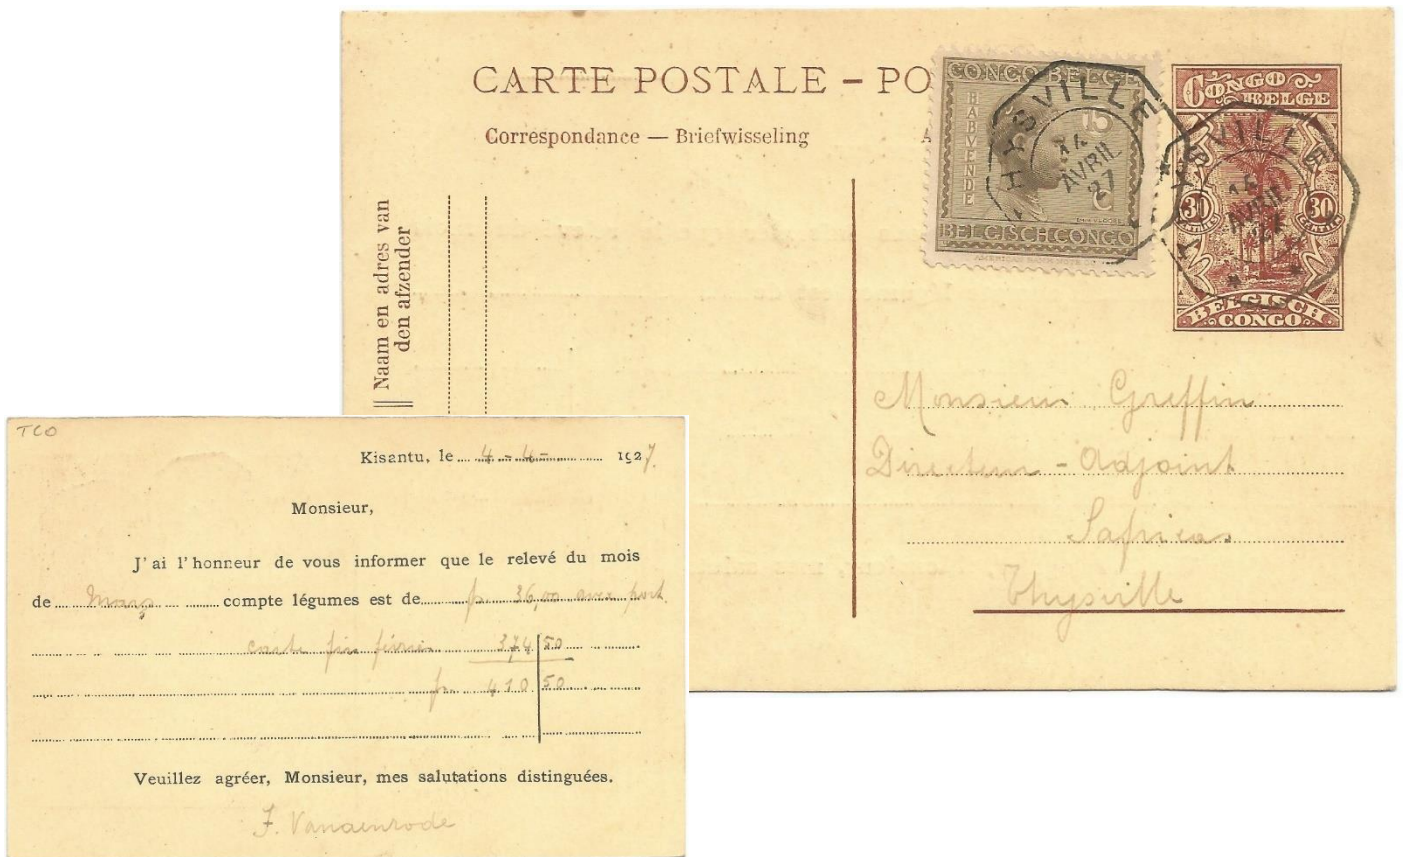 CARTE POSTALE – PO
Correspondance — Briefwisseling
A
Naam en adres van
den afzender
CONGO BELGE
BABVENDE
15
C
BELGISCH CONGO
THYSVILLE
14
AVRIL
27
CONGO
BELGE
30
30
CENTIMES
BELGISCH
CONGO
THYSVILLE
14
AVRIL
Monsieur Greffin
Directeur - Adjoint
Safricas
Thysville
TCO
Kisantu, le 4 - 4 - 1927.
Monsieur,
J'ai l'honneur de vous informer que le relevé du mois
de Mars compte légumes est de fr. 36,00 avec port.
carte fin février 374 50
fr. 410 50
Veuillez agréer, Monsieur, mes salutations distinguées.
J. Vanaenrode